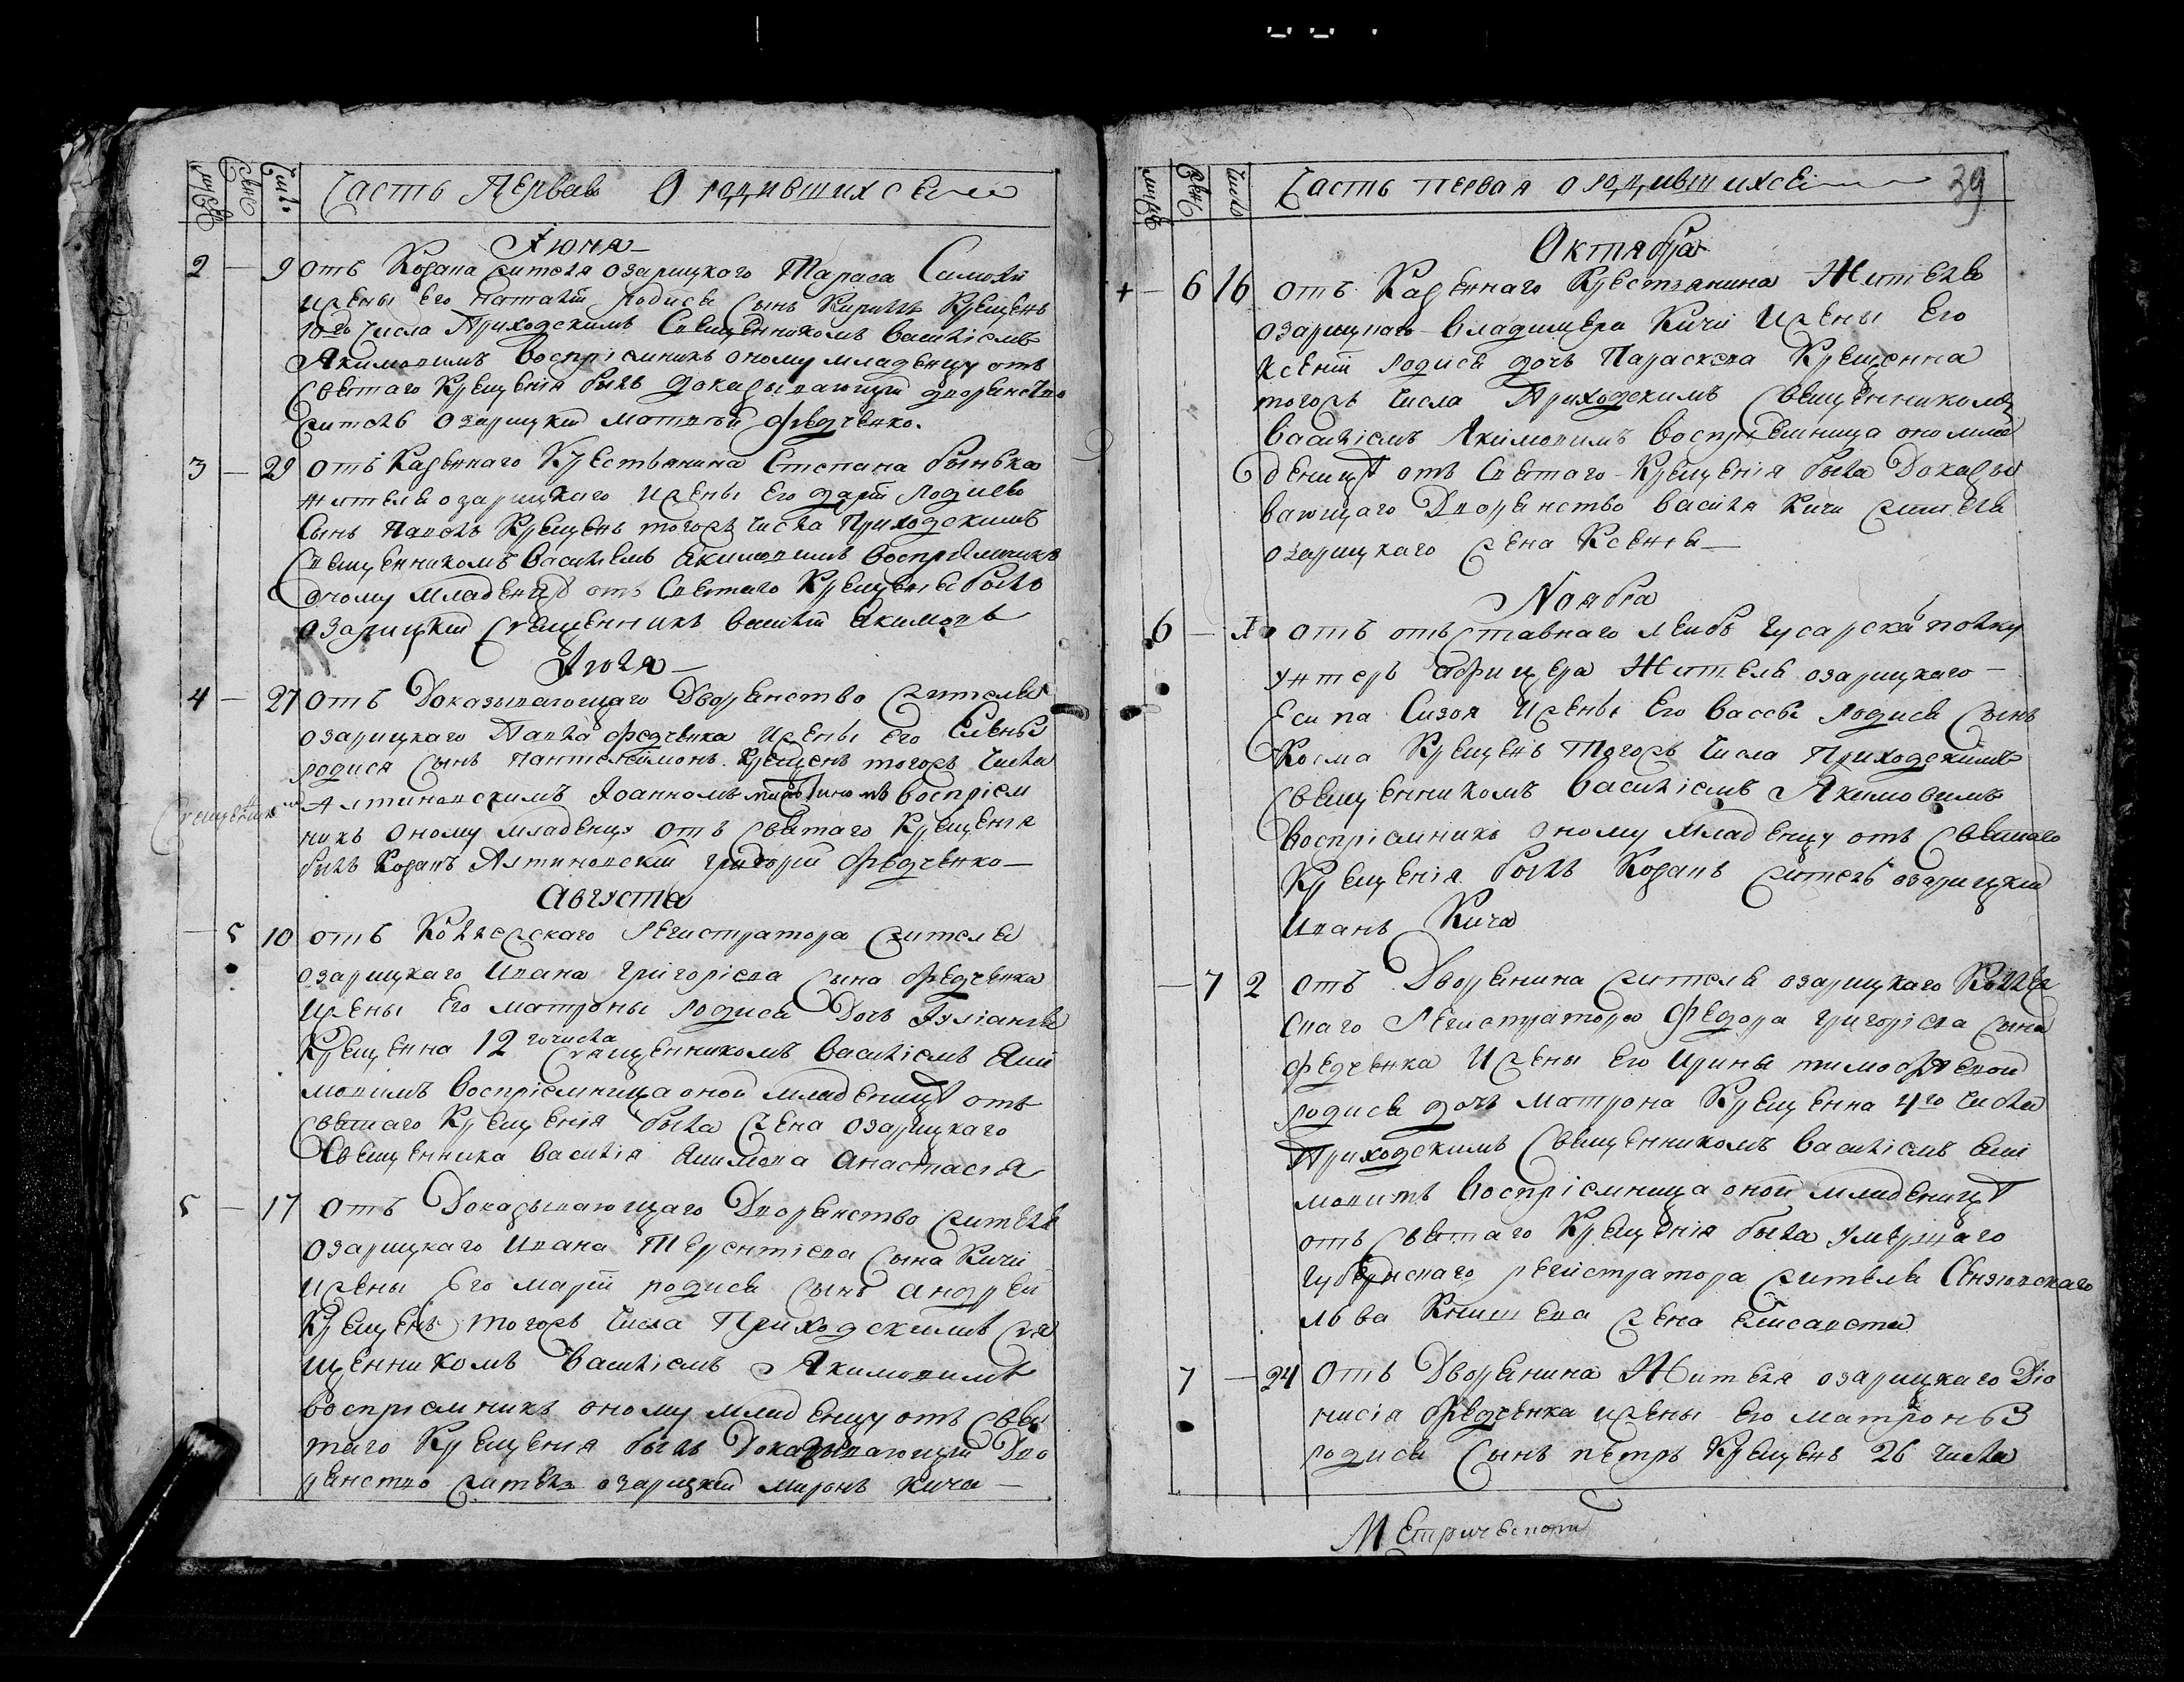 мужс женс число
Часть Первая О родившихся
Іюня
2 — 9 отъ Козака жителя озарицкаго Тараса Самойл
ижены Его наталіи родися Сынъ Кириллъ Крещенъ
10го числа Приходскимъ Священникомъ василіемъ
Якимовимъ восприемникъ оному младенцу отъ
святаго Крещенія былъ доказывающій дворянство
житель Озарицкий матвей федченко.
3 — 29 отъ казеннаго Крестьянина Степана
жителя озарицкаго ижены Его даріи родися
Сынъ павелъ Крещенъ тогожъ числа Приходскимъ
Священникомъ василіемъ Акимовимъ восприемникъ
оному младенцу отъ святаго Крещения былъ
Озарицкий священникъ василій Акимовъ
Іюля
4 — 27 отъ Доказывающаго Дворянство жителя
озарицкаго Павла федченка ижены Его Елены
родися Сынъ пантелеймонъ Крещенъ тогожъ числа
Священникомъ Алтиновскимъ Іоанномъ восприем
никъ оному младенцу отъ святаго Крещенія
былъ Козакъ Алтиновскій григорій Федченко —
Августа
— 5 10 отъ Коллежскаго Регистратора жителя
озарицкаго Ивана григоріева сына федченка
ижены Его матроны родися Дочь Іуліанія
Крещенна 12 го числа Священникомъ василіемъ Аки
мовимъ восприемница оной младеницѣ отъ
святаго Крещенія была жена озарицкаго
священника василія Акимова Анастасія
5 — 17 отъ Доказывающаго Дворянство жителя
Озарицкаго Ивана Терентіева сына Кичи
ижены Его маріи родися сынъ андрей
Крещенъ тогожъ числа Приходскимъ свя
щенникомъ василіемъ Якимовимъ
восприемникъ оному младенцу отъ свя
таго Крещения былъ Доказывающій Дво
рянство житель озарицкий миронъ Кича —
мужс женс число
Часть первая о родившихся 39
Октября
+ — 6 16 отъ Казеннаго Крестьянина Жителя
озарицкаго владимера Кичи ижены Его
Ксеніи родися дочь Параскева Крещенна
тогожъ числа Приходскимъ священникомъ
василіемъ Якимовимъ восприемница оно мла
деницѣ отъ святаго Крещенія была Доказы
вающаго Дворянство василя Кичи жителя
озарицкаго жена Ксенія —
Ноября
6 — отъ отъставнаго лейбъ гусарска полку
унтеръ афицера Жителя озарицкаго —
Есипа Сизоя ижены Его вассы родися Сынъ
Косма Крещенъ тогожъ числа Приходскимъ
священникомъ василіемъ Якимовимъ
восприемникъ оному младенцу отъ святаго
Крещенія былъ Козакъ житель озарицкий
Иванъ Кича
— 7 2 отъ Дворянина жителя озарицкаго Коллеж
скаго Регистратора Федора григоріева сына
федченка ижены Его Ирины тимофѣевой
родися дочь матрона Крещенна 4го числа
Приходскимъ священникомъ василіемъ Аки
мовимъ восприемница оной младеницѣ
отъ святаго Крещенія была умершаго
губернскаго регистратора жителя
льва жена елисавета
7 — 24 отъ Дворянина Жителя озарицкаго Діо
нисія федченка ижены Его матроны
родися Сынъ петръ Крещенъ 26 числа